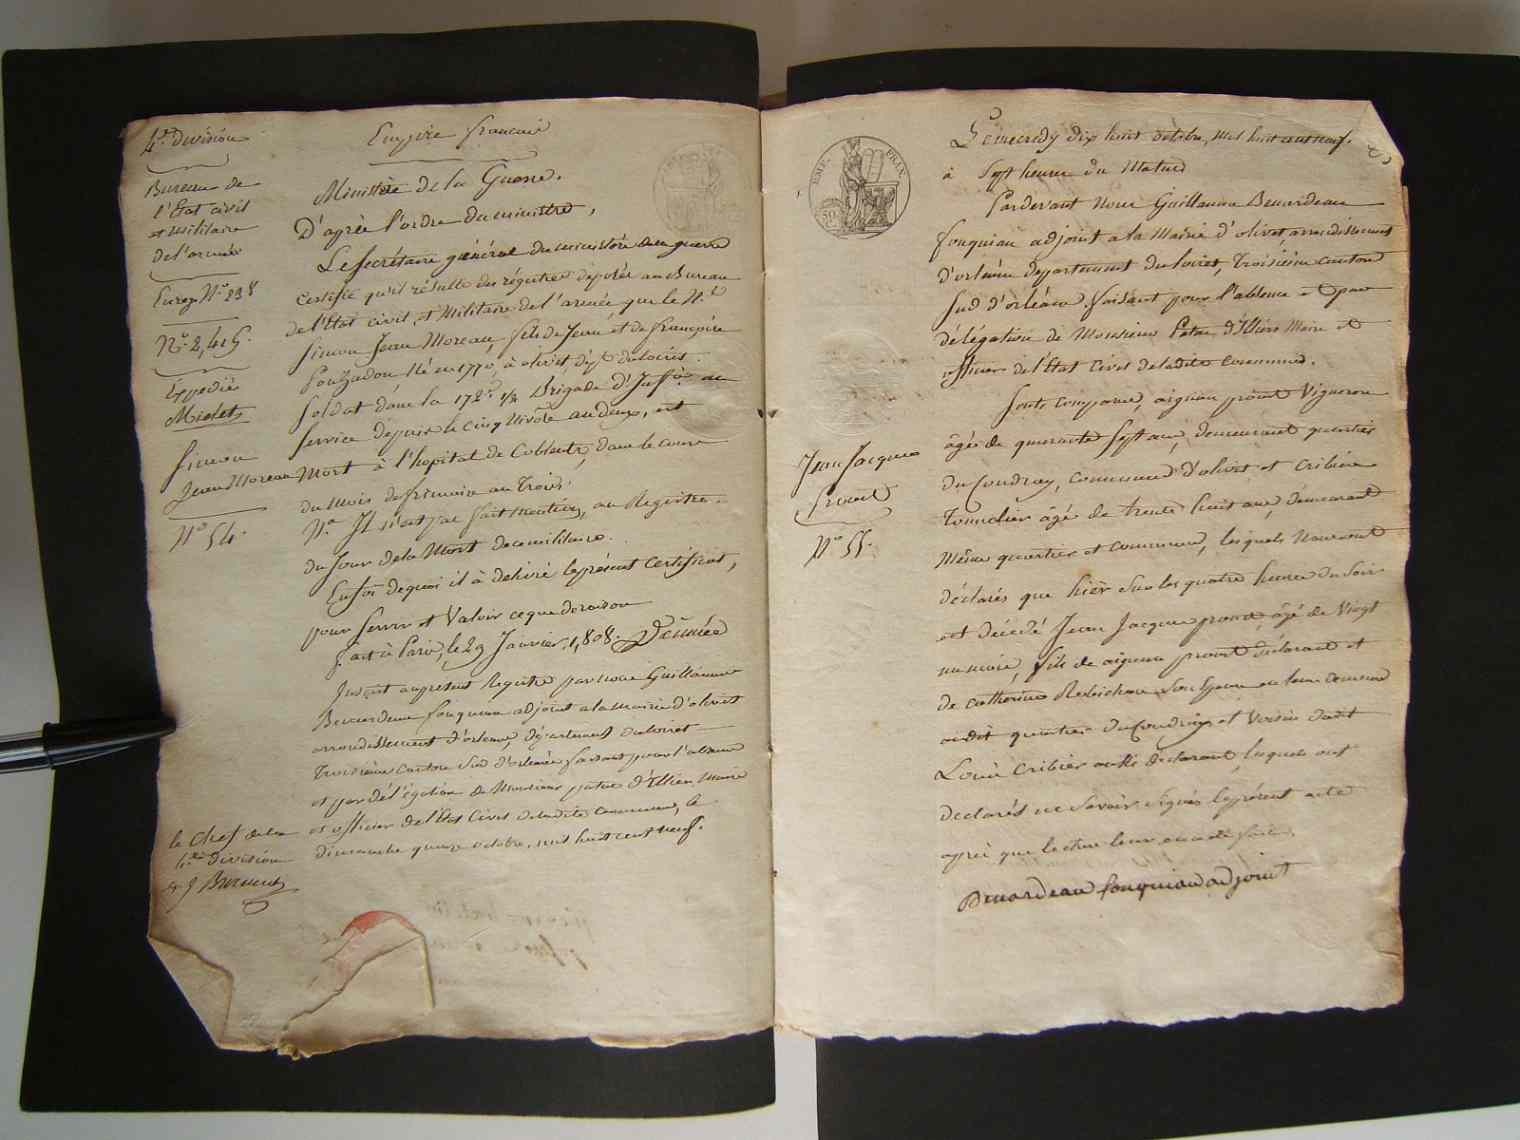 4e Division
Bureau de
l'Etat civil
et militaire
de l'armée
Enreg. No. 238
No. 2,415.
Expédiés
Miolet
Simon
Jean Moreau
No 54.
le Chef de la
4eme Division
Empire francais
Ministère de la Guerre.
D'après l'ordre du ministre,
Le secrétaire général du ministère de la guerre
certifie qu'il résulte des régistres déposés au Bureau
de l'Etat civil, et Militaire de l'armée que le N.é
Simon Jean Moreau, fils de Jean et de françoise
né en 1770, à olivet, dépt du loiret.
Soldat dans la 172e 1/2 Brigade d'Infie au
service depuis le cinq Nivose an deux, est
Mort à l'hopital de Coblentz, dans le cours
du Mois de frimaire an Trois.
Na. Il n'est pas fait mention, au Registre
du Jour de la Mort de ce militaire.
En foi de quoi il à délivré le présent Certificat,
pour servir et Valoir ce que de raison
fait à Paris, le 29 Janvier, 1,808. Denniée
Inscrit au present Registre par nous Guillaume
Benardeau fouqueau adjoint a la mairie d'olivet
arrondissement d'orleans, département du loiret
Troisième Canton Sud d'orleans faisant pour l'absence
et par délégation de Monsieur patas d'Illiers Maire
et officier de l'Etat Civil de ladite commune, le
dimanche quinze octobre, mil huit cent neuf.
EMP. FRAN.
50 C.
Jean Jacques
prout
No 55.
Le mecredy dix huit octobre, mil huit cent neuf.
à Sept heure du Matin
Pardevant Nous Guillaume Benardeau
fouquiau adjoint a la Mairie d'olivet, arrondissement
d'orleans departement du loiret, Troisième canton
Sud d'orléans faisant pour l'absence et par
délégation de Monsieur Patas d'Illiers Maire et
officier de l'Etat Civil de ladite commune.
Sont comparus, aignan prout Vigneron
âgé de quarante sept ans, demeurant quartier
du Coudray, commune d'olivet et cribier
Tonnelier âgé de trente huit ans, demeurant
Même quartier et commune, lesquels Nous ont
déclarés que hier sur les quatre heures du Soir
est décédé Jean Jacques prout, âgé de Vingt
fils de aignan prout déclarant et
de catherine Robichon son Epouse en leur
audit quartier du Coudray et Voisin dudit
Louis Cribier aussi declarant, lesquels ont
declarés ne Savoir Signés le présent acte
après que lecture leur en a été faite.
Benardeau fouquiau adjoint